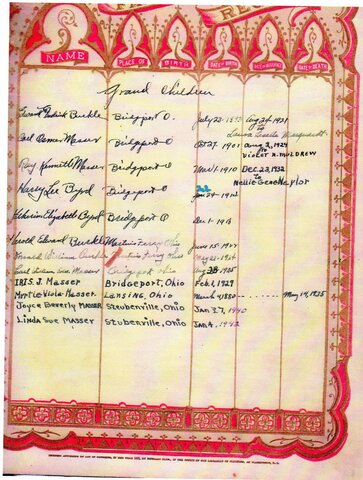 FA RE
NAME PLACE OF BIRTH DATE OF BIRTH DATE OF DEATH
Grand Children
Edward Fredrick Buckle Bridgeport O. July 22-1893 Aug 21-1921
to
Laura Marquardt
Earl Osmer Masser Bridgeport O Oct 27. 1901 Aug 2, 1924
to
Violet A. Muldrew
Roy Kenneth Masser Bridgeport O Mar 1 1910 Dec. 23, 1932
to
Nellie Grace Naylor
Harry Lee Byrd Bridgeport O Jan 29-1912
22
Elizabeth Byrd Bridgeport O Dec 1-1913
Harold Edward Buckle Martins Ferry Ohio June 15-1922
William Martins Ferry Ohio May 21-1924
Earl Masser Bridgeport Ohio Aug 28-1925
IRIS. J. Masser Bridgeport, Ohio Feb. 1, 1929
Myrtle Viola Masser. Lansing, Ohio March 4, 1880 - . . . . . - May 19, 1935
Joyce Beverly MASSER Steubenville, Ohio Jan 27. 1940
LINDA SUE MASSER Steubenville, Ohio Jan 4. 1942